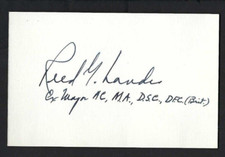 Reed G. Landis
Ex Major AC, MA, DSC, DFC (Brit)